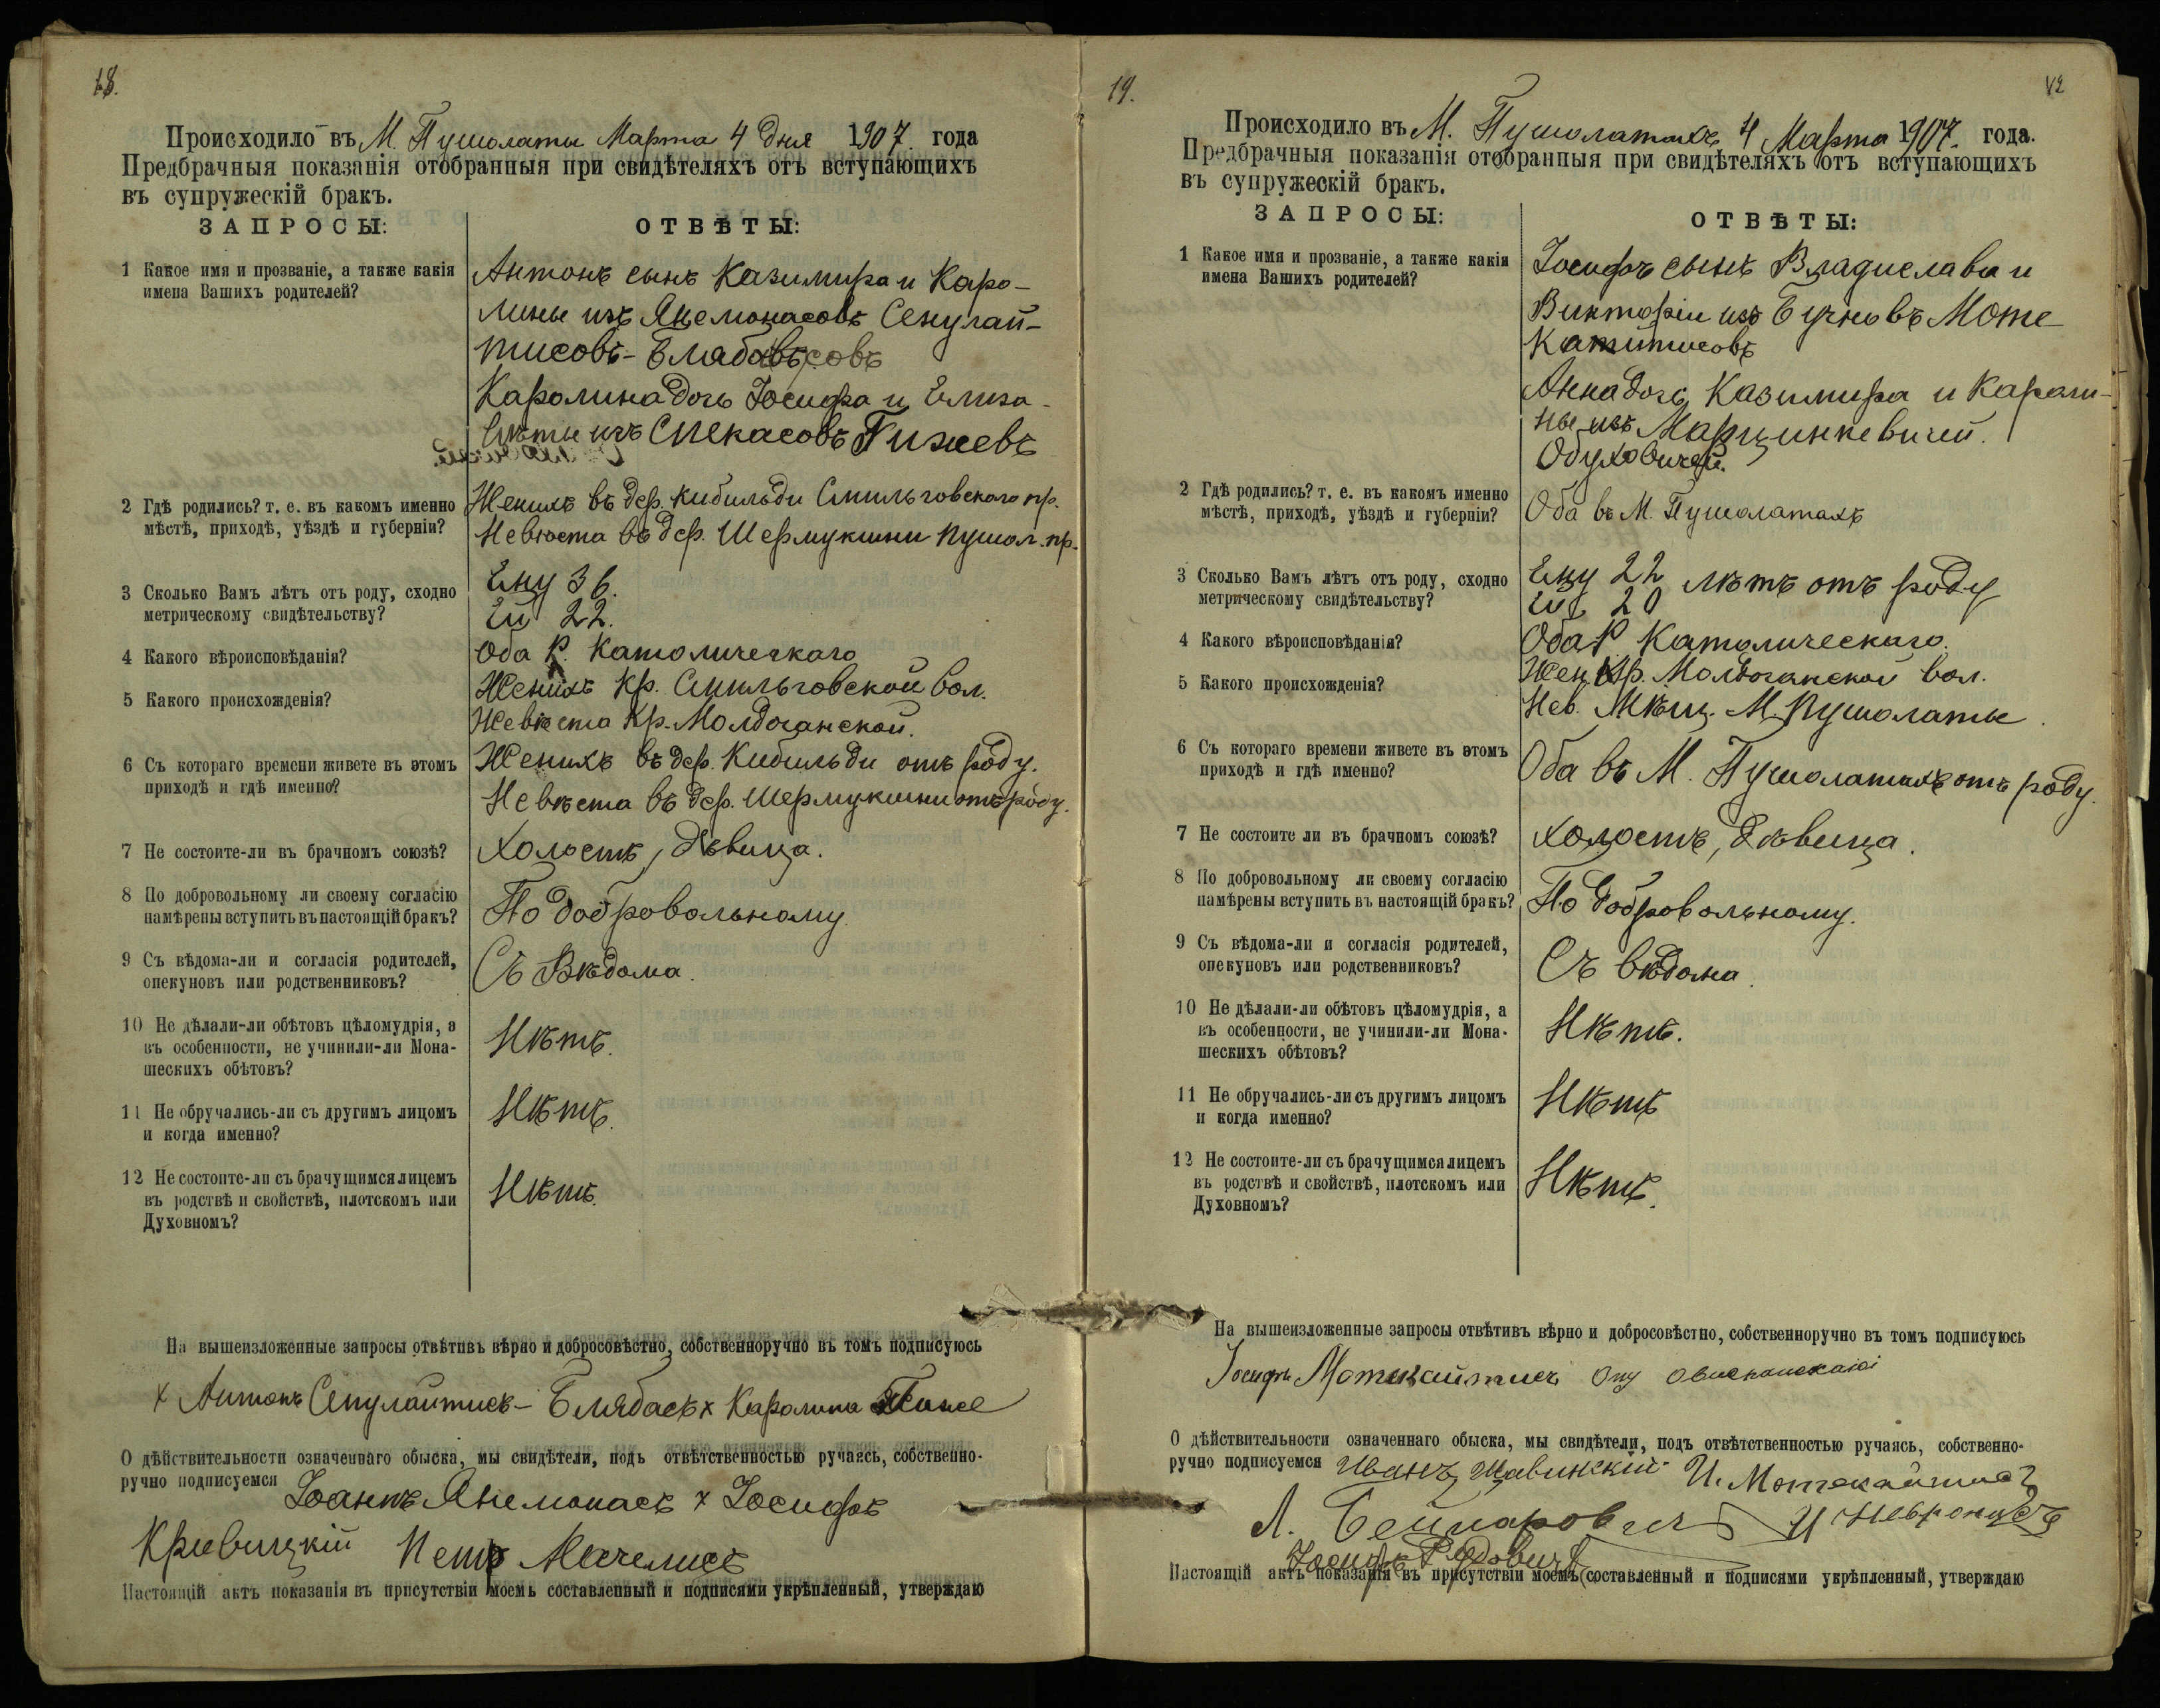 18.
Происходило въ М. Пушолаты Марта 4 дня 1907 года
Предбрачныя показанія отобранныя при свидѣтеляхъ отъ вступающихъ
въ супружескій бракъ.
ЗАПРОСЫ: ОТВѢТЫ:
1 Какое имя и прозваніе, а также какія
имена Вашихъ родителей?
Антонъ сынъ Казимира и Каро-
лины изъ Янемонасовъ Сенулай-
тисовъ-
Каролина дочь Іосифа и Елиза-
веты изъ Спекасовъ Гижевъ
2 Гдѣ родились? т. е. въ какомъ именно
мѣстѣ, приходѣ, уѣздѣ и губерніи?
Женихъ въ дер. Кибильди Смильговскаго пр.
Невѣста въ дер. Шермукшни Пушол. пр.
3 Сколько Вамъ лѣтъ отъ роду, сходно
метрическому свидѣтельству?
Ему 36.
Ей 22.
4 Какого вѣроисповѣданія?
Оба Р. Католическаго
5 Какого происхожденія?
Женихъ Кр. Смильговской вол.
Невѣста Кр. Молдочанской.
6 Съ котораго времени живете въ этомъ
приходѣ и гдѣ именно?
Женихъ въ дер. Кибильди отъ роду.
Невѣста въ дер. Шермукшни отъ роду.
7 Не состоите-ли въ брачномъ союзѣ?
Холостъ, дѣвица.
8 По добровольному ли своему согласію
намѣрены вступить въ настоящій бракъ?
По добровольному.
9 Съ вѣдома-ли и согласія родителей,
опекуновъ или родственниковъ?
Съ Вѣдома.
10 Не дѣлали-ли обѣтовъ цѣломудрія, а
въ особенности, не учинили-ли Мона-
шескихъ обѣтовъ?
Нѣтъ.
11 Не обручались-ли съ другимъ лицомъ
и когда именно?
Нѣтъ.
12 Не состоите-ли съ брачущимся лицемъ
въ родствѣ и свойствѣ, плотскомъ или
Духовномъ?
Нѣтъ.
На вышеизложенные запросы отвѣтивъ вѣрно и добросовѣстно, собственноручно въ томъ подписуюсь
х Антонъ Сенулайтисъ- Блябасъ х Каролина Гиже
О дѣйствительности означеннаго обыска, мы свидѣтели, подъ отвѣтственностью ручаясь, собственно-
ручно подписуемся Іоаннъ Янемонасъ х Іосифъ
Кривицкій Петръ
Настоящій актъ показанія въ присутствіи моемъ составленный и подписями укрѣпленный, утверждаю
19.
Происходило въ М. Пушолатахъ 4 Марта 1907. года.
Предбрачныя показанія отобранныя при свидѣтеляхъ отъ вступающихъ
въ супружескій бракъ.
ЗАПРОСЫ: ОТВѢТЫ:
1 Какое имя и прозваніе, а также какія
имена Вашихъ родителей?
Іосифъ сынъ Владислава и
Викторіи изъ Бучновъ Моте
Анна дочь Казимира и Кароли-
ны изъ Марцинкевичей.
Обуховичей.
2 Гдѣ родились? т. е. въ какомъ именно
мѣстѣ, приходѣ, уѣздѣ и губерніи?
Оба въ М. Пушолатахъ
3 Сколько Вамъ лѣтъ отъ роду, сходно
метрическому свидѣтельству?
Ему 22 лѣтъ отъ роду
Ей 20
4 Какого вѣроисповѣданія?
Оба Р. Католическаго.
5 Какого происхожденія?
Жен. Кр. Молдочанской вол.
Нев. Мѣщ. М. Пушолаты.
6 Съ котораго времени живете въ этомъ
приходѣ и гдѣ именно?
Оба въ М. Пушолатахъ отъ роду.
7 Не состоите ли въ брачномъ союзѣ?
Холостъ, дѣвица.
8 По добровольному ли своему согласію
намѣрены вступить въ настоящій бракъ?
По добровольному.
9 Съ вѣдома-ли и согласія родителей,
опекуновъ или родственниковъ?
Съ вѣдома.
10 Не дѣлали-ли обѣтовъ цѣломудрія, а
въ особенности, не учинили-ли Мона-
шескихъ обѣтовъ?
Нѣтъ.
11 Не обручались-ли съ другимъ лицомъ
и когда именно?
Нѣтъ
12 Не состоите-ли съ брачущимся лицемъ
въ родствѣ и свойствѣ, плотскомъ или
Духовномъ?
Нѣтъ.
На вышеизложенные запросы отвѣтивъ вѣрно и добросовѣстно, собственноручно въ томъ подписуюсь
Іосифъ Мотекайтисъ
О дѣйствительности означеннаго обыска, мы свидѣтели, подъ отвѣтственностью ручаясь, собственно-
ручно подписуемся Иванъ Щавинскій И. Мотекайтисъ
Л.
Іосифъ
Настоящій актъ показанія въ присутствіи моемъ составленный и подписями укрѣпленный, утверждаю